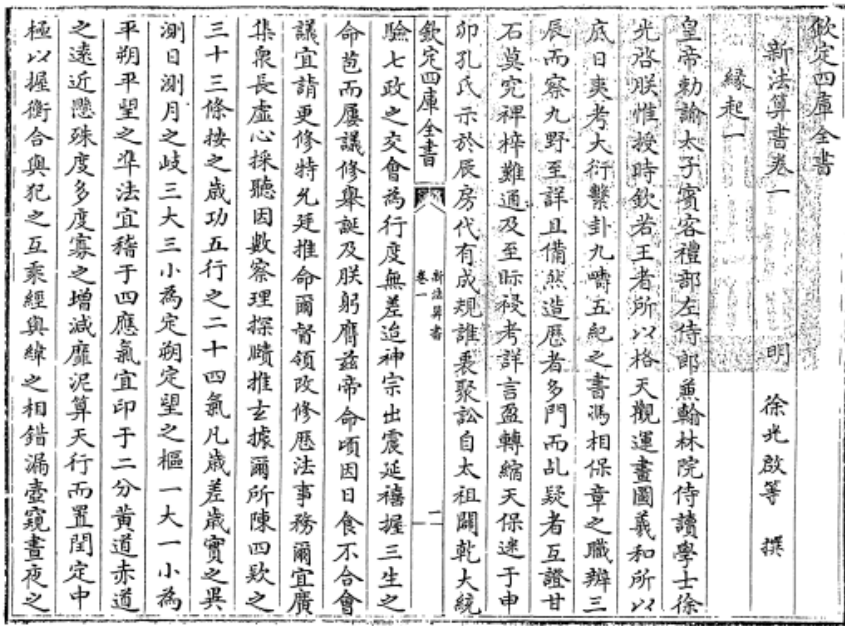 欽定四庫全書
新法算書卷一
明 徐光啟等 撰
緣起一
皇帝勅諭太子賓客禮部左侍郎兼翰林院侍讀學士徐
光啓朕惟授時欽若王者所以格天觀運畫圖羲和所以
底日爽考大衍繫卦九疇五紀之書馮相保章之職辨三
辰而察九野至詳且備然造厯者多門而乩疑者互證甘
石莫究裨梓難通及至眎祲考詳言盈轉縮天保迷于申
卯孔氏示於辰房代有成規誰袠聚訟自太祖闢乾大統
欽定四庫全書
新法算書
卷一
二
驗七政之交會為行度無差迨神宗出震延禧握三生之
命苞而屢議修舉誕及朕躬膺兹帝命頃因日食不合會
議宜請更修特允廷推命爾督領改修厯法事務爾宜廣
集衆長虚心採聽因數察理探賾推𤣥據爾所陳四欵之
三十三條按之歲功五行之二十四氣凡歲差歲實之異
測日測月之歧三大三小為定朔定望之樞一大一小為
平朔平望之凖法宜稽于四應氣宜印于二分黄道赤道
之逺近懸殊度多度寡之增減靡泥算天行而置閏定中
極以握衡合與犯之互乘經與緯之相錯漏壺窺晝夜之